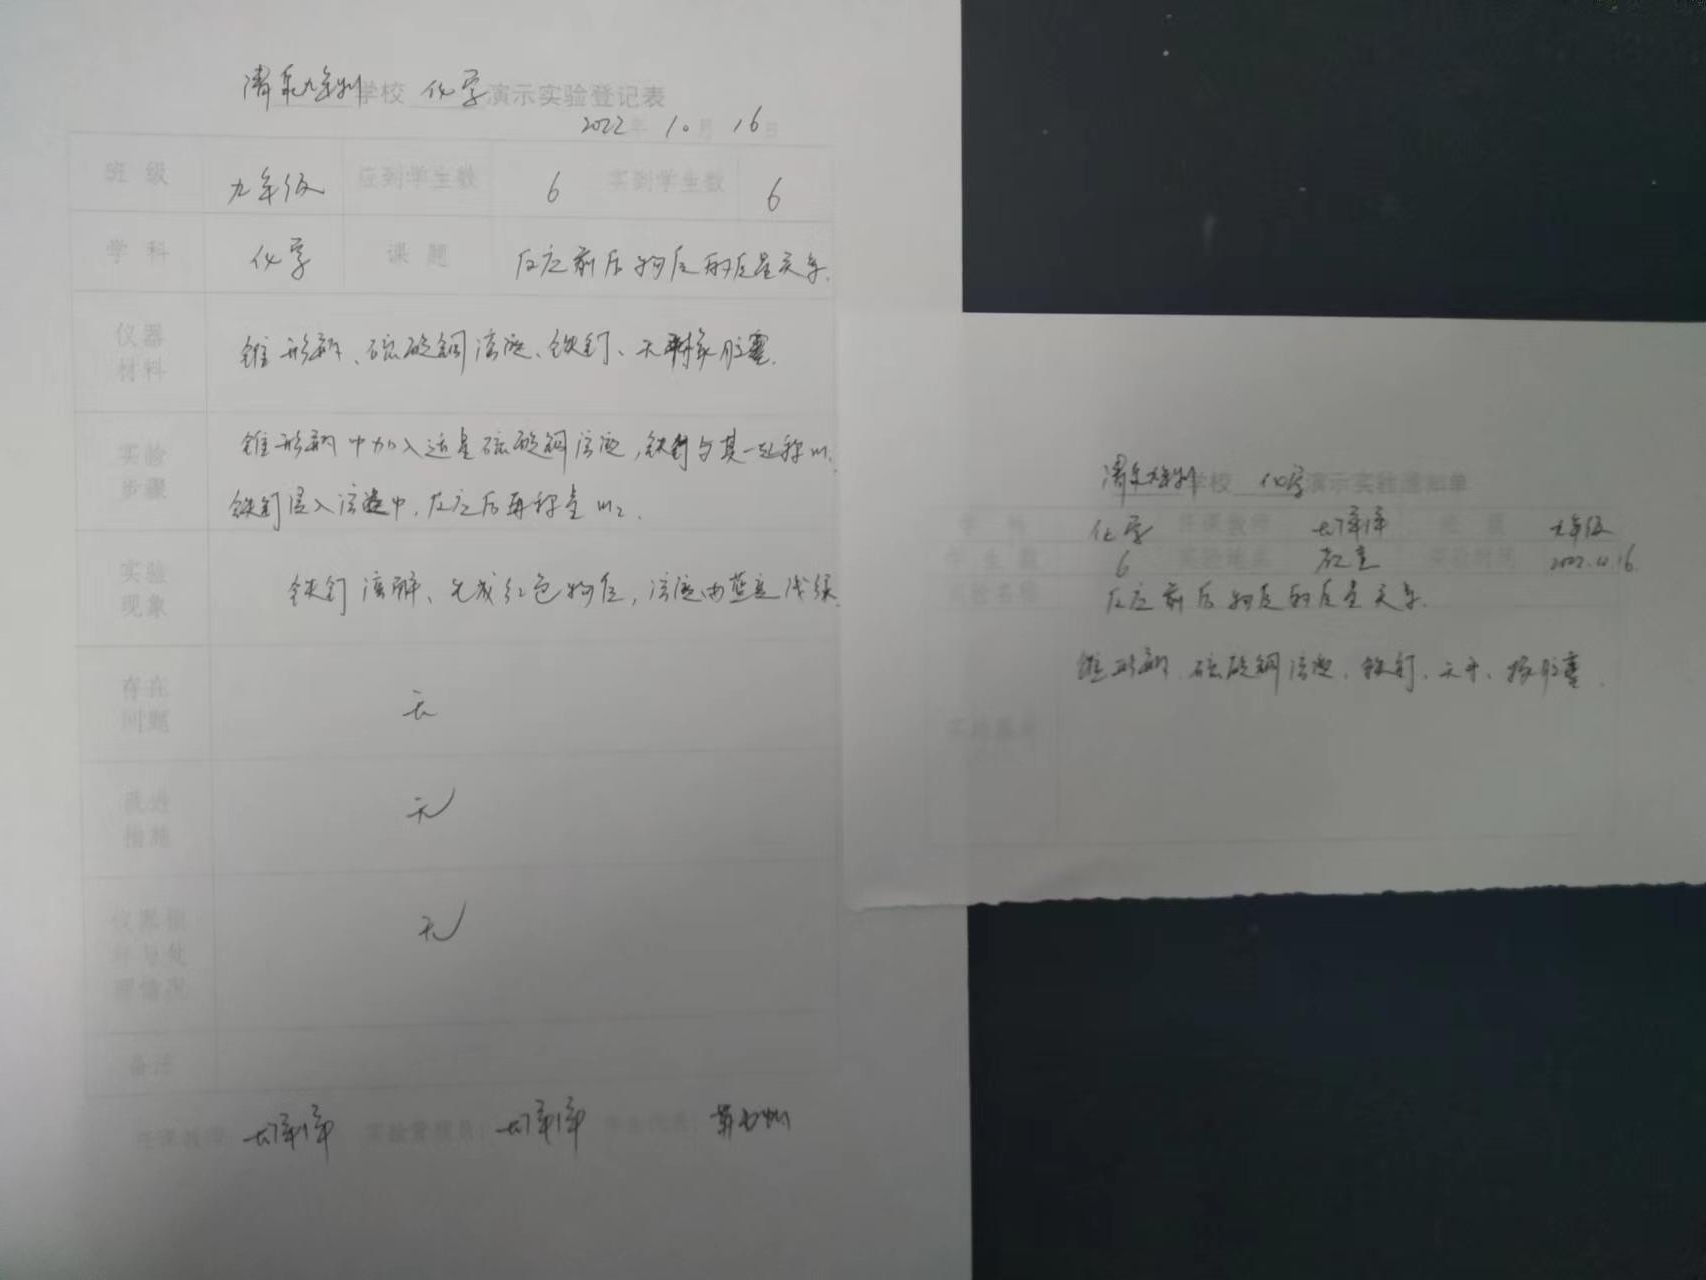 清泉九年制学校 化学演示实验登记表
2022年 10月 16日
班 级 九年级 应到学生数 6 实到学生数 6
学 科 化学 课 题 反应前后物质的质量关系.
仪器材料 锥形瓶、硫酸铜溶液、铁钉、天平橡胶塞.
实验步骤 锥形瓶中加入适量硫酸铜溶液,铁钉与其一起称m₁.
铁钉浸入溶液中,反应后再称量m₂.
实验现象 铁钉溶解、生成红色物质,溶液由蓝变浅绿.
存在问题 无
改进措施 无
仪器损坏与处理情况 无
备注
任课教师: 实验管理员: 学生代表:
清泉九年制学校 化学演示实验通知单
学 科 化学 任课教师 班 级 九年级
学生数 6 实验地点 教室 实验时间 2022.10.16
实验名称 反应前后物质的质量关系.
锥形瓶、硫酸铜溶液、铁钉、天平、橡胶塞.
实验器材